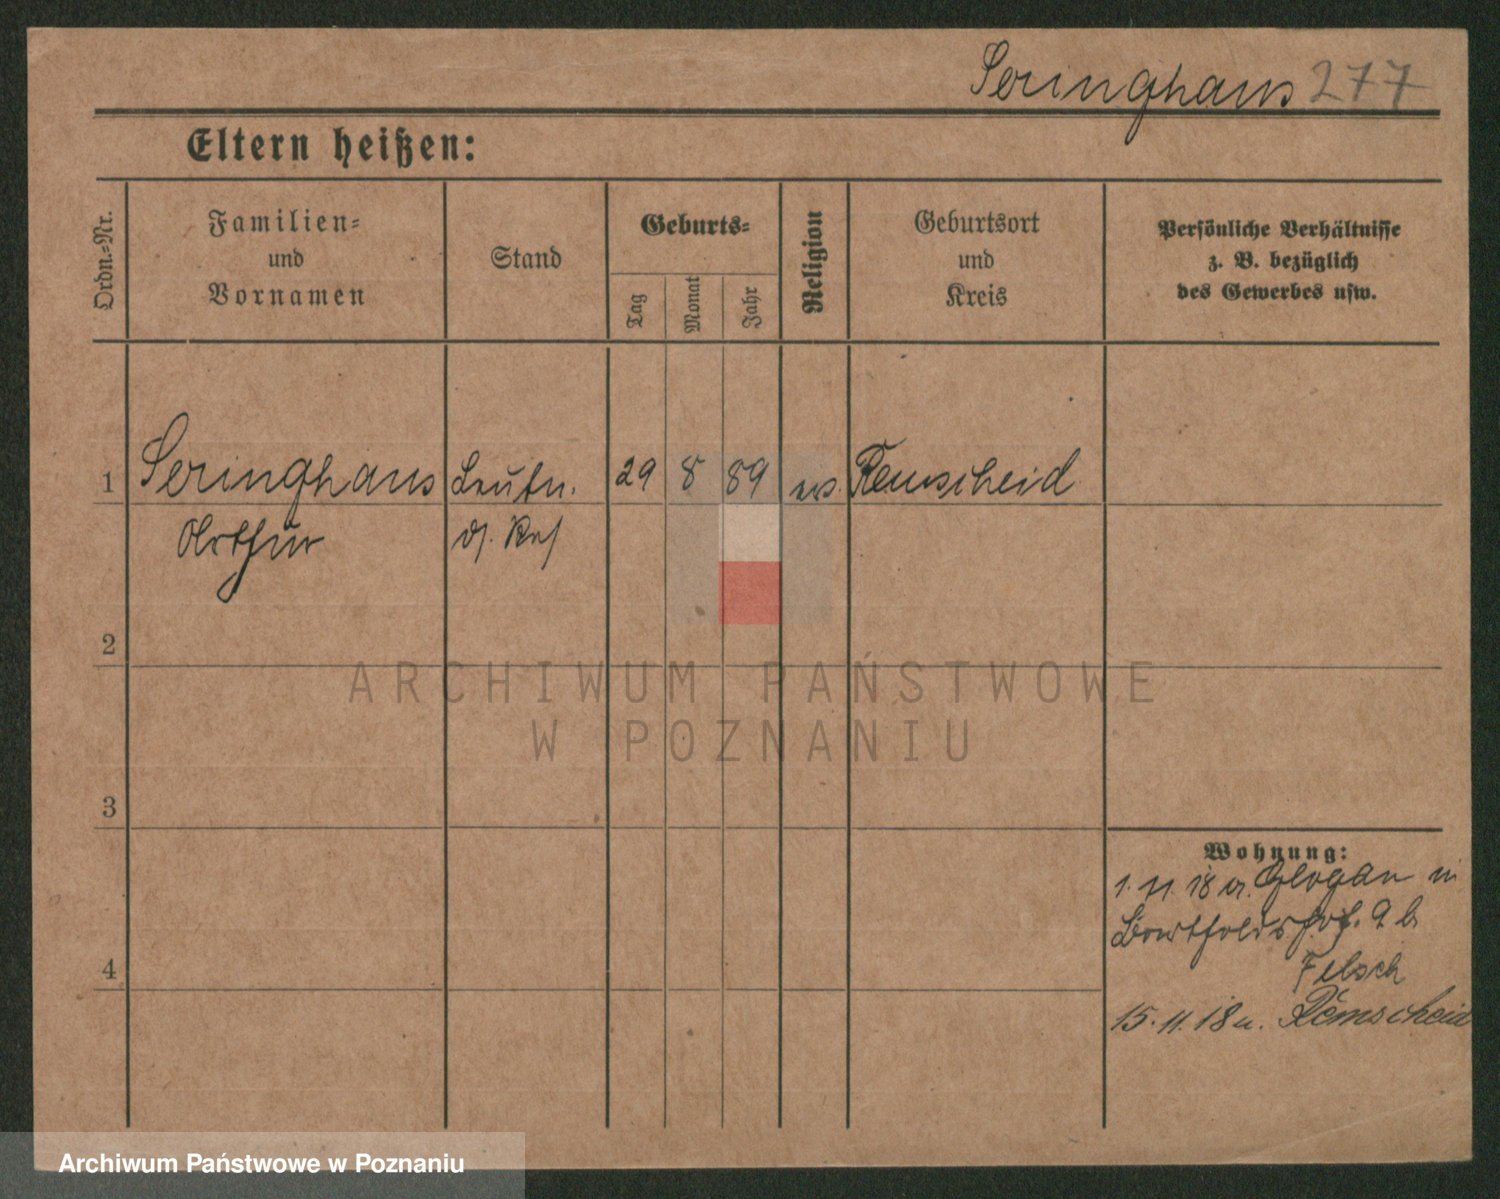 Seringhaus 277
Eltern heißen:
Ordn.-Nr.
Familien-
und
Vornamen
Stand
Geburts-
Tag
Monat
Jahr
Religion
Geburtsort
und
Kreis
Persönliche Verhältnisse
z. B. bezüglich
des Gewerbes usw.
1 Seringhaus Leutn. 29 8 89 ev. Remscheid
Arthur d. Res
2
3
4
Wohnung:
1. 11. 18 v. Glogau in
9 b.
Felsch
15. 11. 18 n. Remscheid
ARCHIWUM PAŃSTWOWE
W POZNANIU
Archiwum Państwowe w Poznaniu